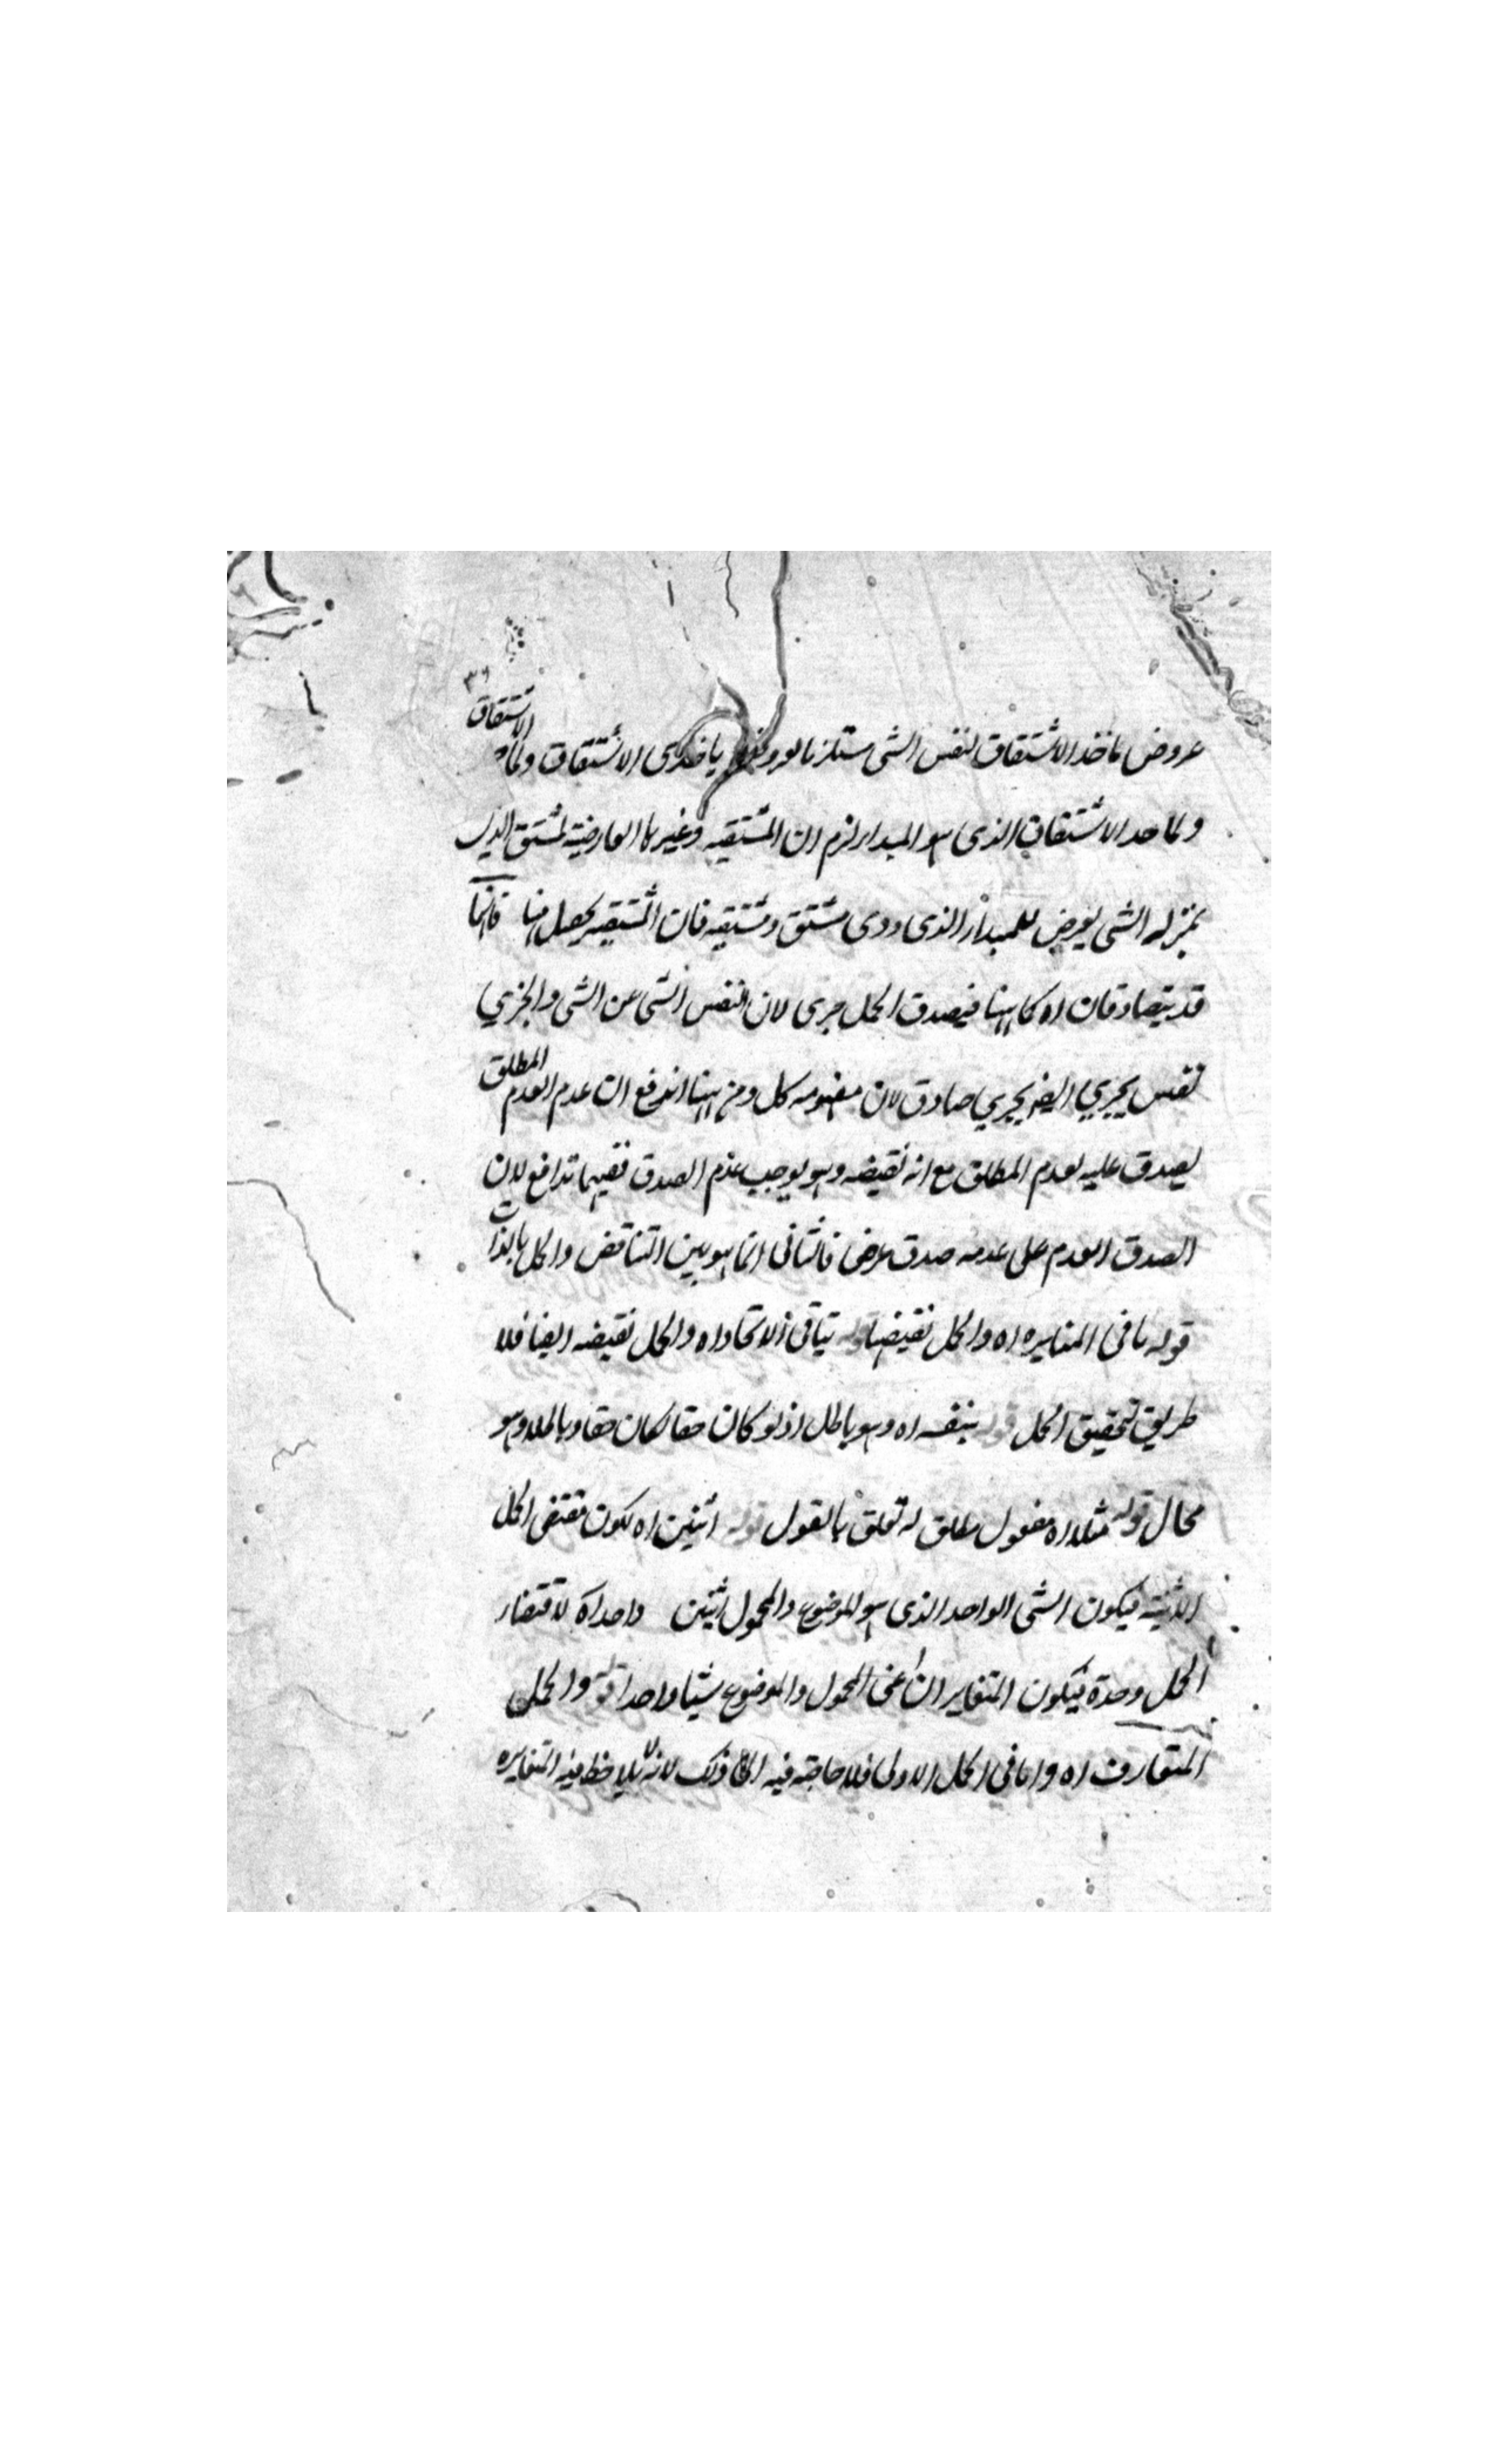 ٣٦
عروض ماخذ الاشتقاق لنفس الشى مستلزما لعروضه ياخذى الاشتقاق ولماه الاشتقاق
ولما خد الاشتقاق الذى هو المبدا لزم ان المشتقيه وغيرها العارضية لمشتق الذى
بمنزله الشى يعرض للمبدأ الذى ودى مشتق ومشتقيه فان المشتقيه يحصل منها فانها
قد يتصادقان اه كما ههنا فيصدق الحمل جرى لان نفس الشى عن الشى والجزي
نفس بجزي ايضا بجزي صادق لان مفهومه كل ومن ههنا اندفع ان عدم العدم المطلق
يصدق عليه لعدم المطلق مع انه نقيضه وهو يوجب عدم الصدق ففيهما تدافع لان
الصدق العدم على عدمه صدق عرض فالثانى انما هو بين التناقض والحمل بالذات
قوله نافى المغايره اه والحمل نقيضها قوله ينافى الاتحاد اه والحمل نقيضه ايضا فلا
طريق لتحقيق الحمل قوله بنفسه اه وهو باطل اذ لو كان حقا لكان حقا وباطلا وهو
محال قوله مثلا اه مفعول مطلق له تعلق بالقول قوله اثنين اه لكون مقتضى الحمل
الاثنينيه فيكون الشى الواحد الذى هو الموضوع والمحمول اثنين واحدا اه لاقتضاء
الحمل وحدة فيكون المتغايران اعنى المحمول والموضوع شيئا واحدا قوله والحمل
المتعارف اه واما فى الحمل الاولى فلا حاجة فيه الى ذلك لانه لا يلاحظ فيه المتغايره